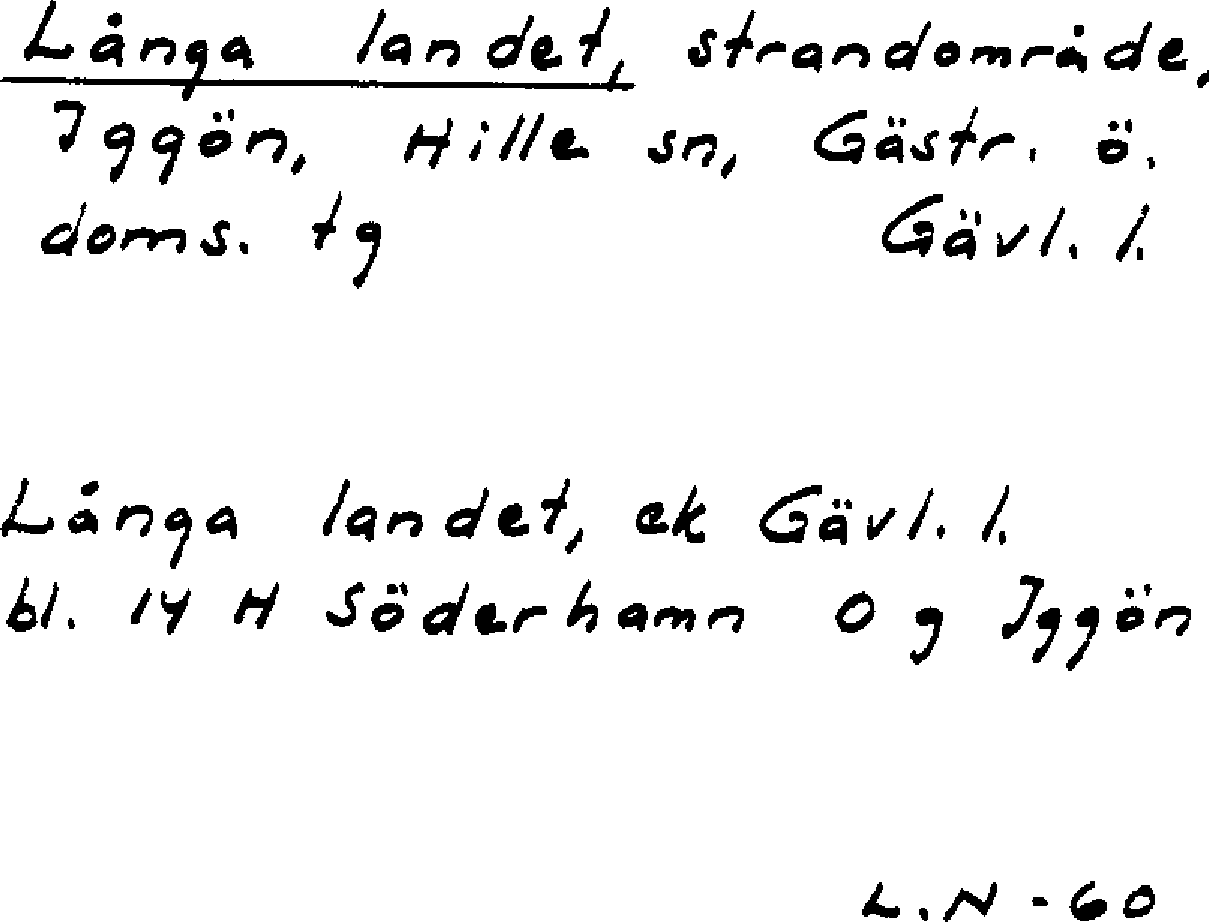 Långa landet, strandområde,
Iggön, Hille sn, Gästr. ö.
doms. tg Gävl. l.
Långa landet, ek Gävl. l.
bl. 14 H Söderhamn 0 g Iggön
L.N - 60